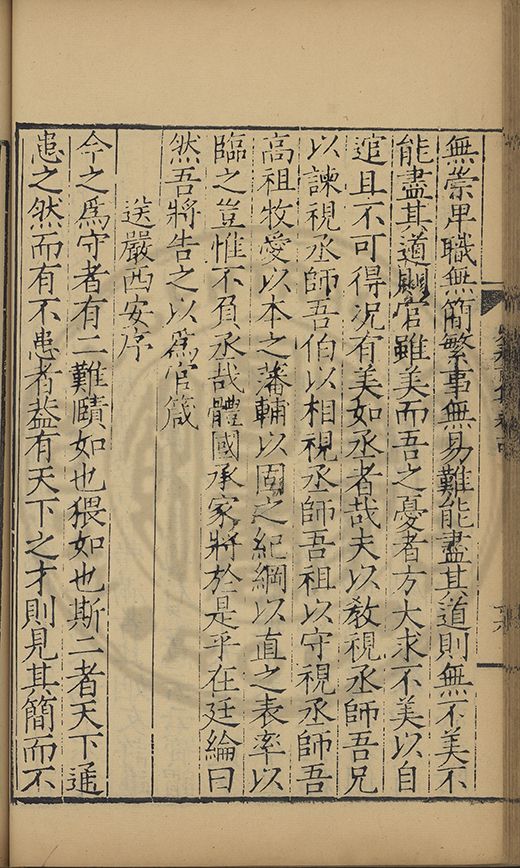 無崇卑職無簡繁事無易難能盡其道則無不美不
能盡其道則官雖美而吾之憂者方大求不美以自
逭且不可得況有美如丞者哉夫以教視丞師吾兄
以諫視丞師吾伯以相視丞師吾祖以守視丞師吾
高祖牧愛以本之藩輔以固之紀綱以直之表率以
臨之豈惟不負丞哉體國承家將於是乎在廷綸曰
然吾將告之以爲官箴
送嚴西安序
今之爲守者有二難賾如也猥如也斯二者天下通
患之然而有不患者蓋有天下之才則見其簡而不